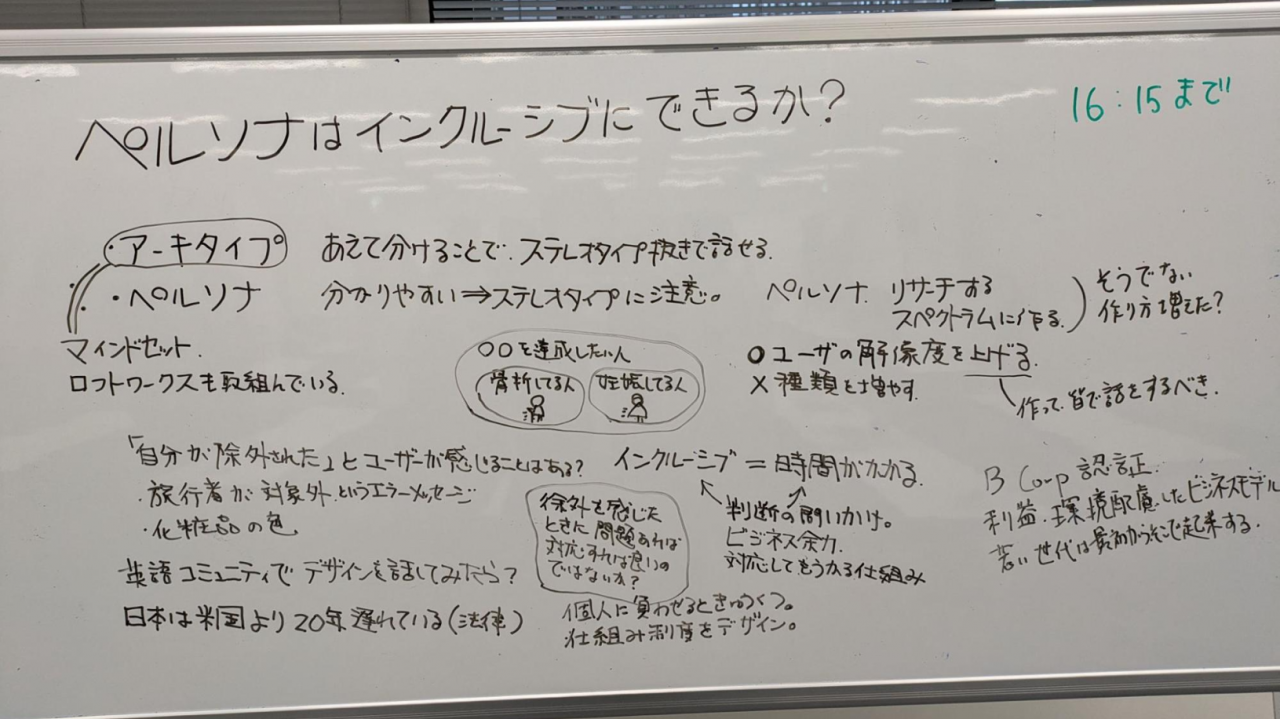 ペルソナはインクルーシブにできるか?
16:15まで
・アーキタイプ
あえて分けることで、ステレオタイプ抜きで話せる。
・ペルソナ
分かりやすい⇒ステレオタイプに注意。
ペルソナ リサーチする
スペクトラムに作る。
そうでない
作り方増えた?
マインドセット.
ロフトワークスも取組んでいる.
〇〇を達成したい人
骨折してる人
妊娠してる人
○ユーザの解像度を上げる.
×種類を増やす.
作って、皆で話をするべき.
「自分が除外された」とユーザーが感じることはある?
・旅行者が対象外というエラーメッセージ
・化粧品の色
英語コミュニティでデザインを話してみたら?
日本は米国より20年遅れている(法律)
インクルーシブ=時間がかかる.
判断の問いかけ。
ビジネス余力.
対応してもうかる仕組み
除外を感じた
ときに問題あれば
対応すれば良いの
ではないか?
個人に負わせるときゅうくつ。
仕組み制度をデザイン。
B Corp 認証.
利益・環境配慮したビジネスモデル
若い世代は最初からそこで起業する.